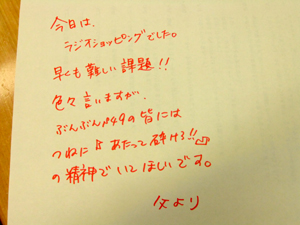 今日は、
ラジオショッピングでした。
早くも難しい課題!!
色々言いますが、
ぶんぶん49の皆には
つねに♪あたって砕けろ!!
の精神でいてほしいです。
父より